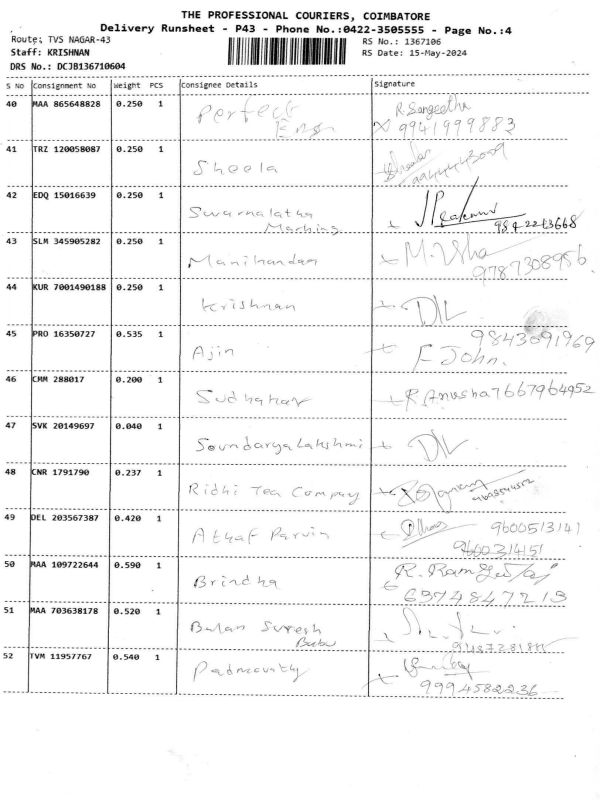 THE PROFESSIONAL COURIERS, COIMBATORE
Delivery Runsheet - P43 - Phone No.:0422-3505555 - Page No.:4
Route: TVS NAGAR-43
RS No.: 1367106
Staff: KRISHNAN
RS Date: 15-May-2024
DRS No.: DCJB136710604
S No Consignment No Weight PCS Consignee Details Signature
40 MAA 865648828 0.250 1 Perfect R. Sangeetha
Eng X 9941999883
41 TRZ 120058087 0.250 1 Sheela
42 EDQ 15016639 0.250 1 Swarnalatha
Machins 9842243668
43 SLM 345905282 0.250 1 Manihandan M. Usha
9787308956
44 KUR 7001490188 0.250 1 Krishnan D/L
45 PRO 16350727 0.535 1 Ajin 9843091969
F John.
46 CMM 288017 0.200 1 Sudhahar R Anusha 7667964952
47 SVK 20149697 0.040 1 Soundarya Lakshmi D/L
48 CNR 1791790 0.237 1 Ridhi Tea Company
49 DEL 203567387 0.420 1 Athaf Parvin 9600513141
9600314151
50 MAA 109722644 0.590 1 Brindha R. Ram
6374847213
51 MAA 703638178 0.520 1 Balan Suresh
Babu
52 TVM 11957767 0.540 1 Padmavathy
9994582236